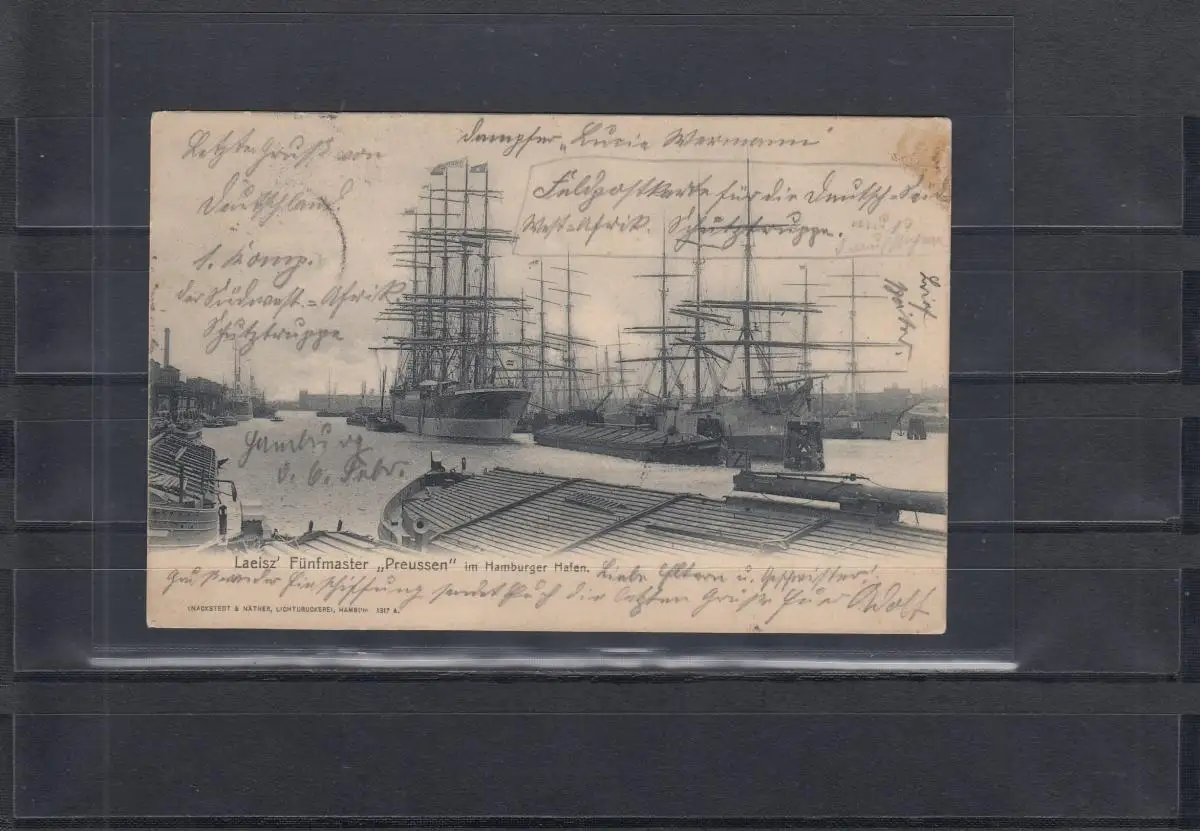 Dampfer „Lucie Wermann"
Letzte Gruß von
Deutschland.
Feldpostkarte für die Deutsch-Süd
West-Afrik. Schutztruppe.
1. Komp.
der Südwest-Afrik
Schutztruppe
Hamburg
d. 6. Febr.
Laeisz' Fünfmaster „Preussen" im Hamburger Hafen.
Liebe Eltern u. Geschwister!
Einschiffung sendet Euch die letzten Grüße Euer Adolf
KNACKSTEDT & NÄTHER, LICHTDRUCKEREI, HAMBURG 1317 A.